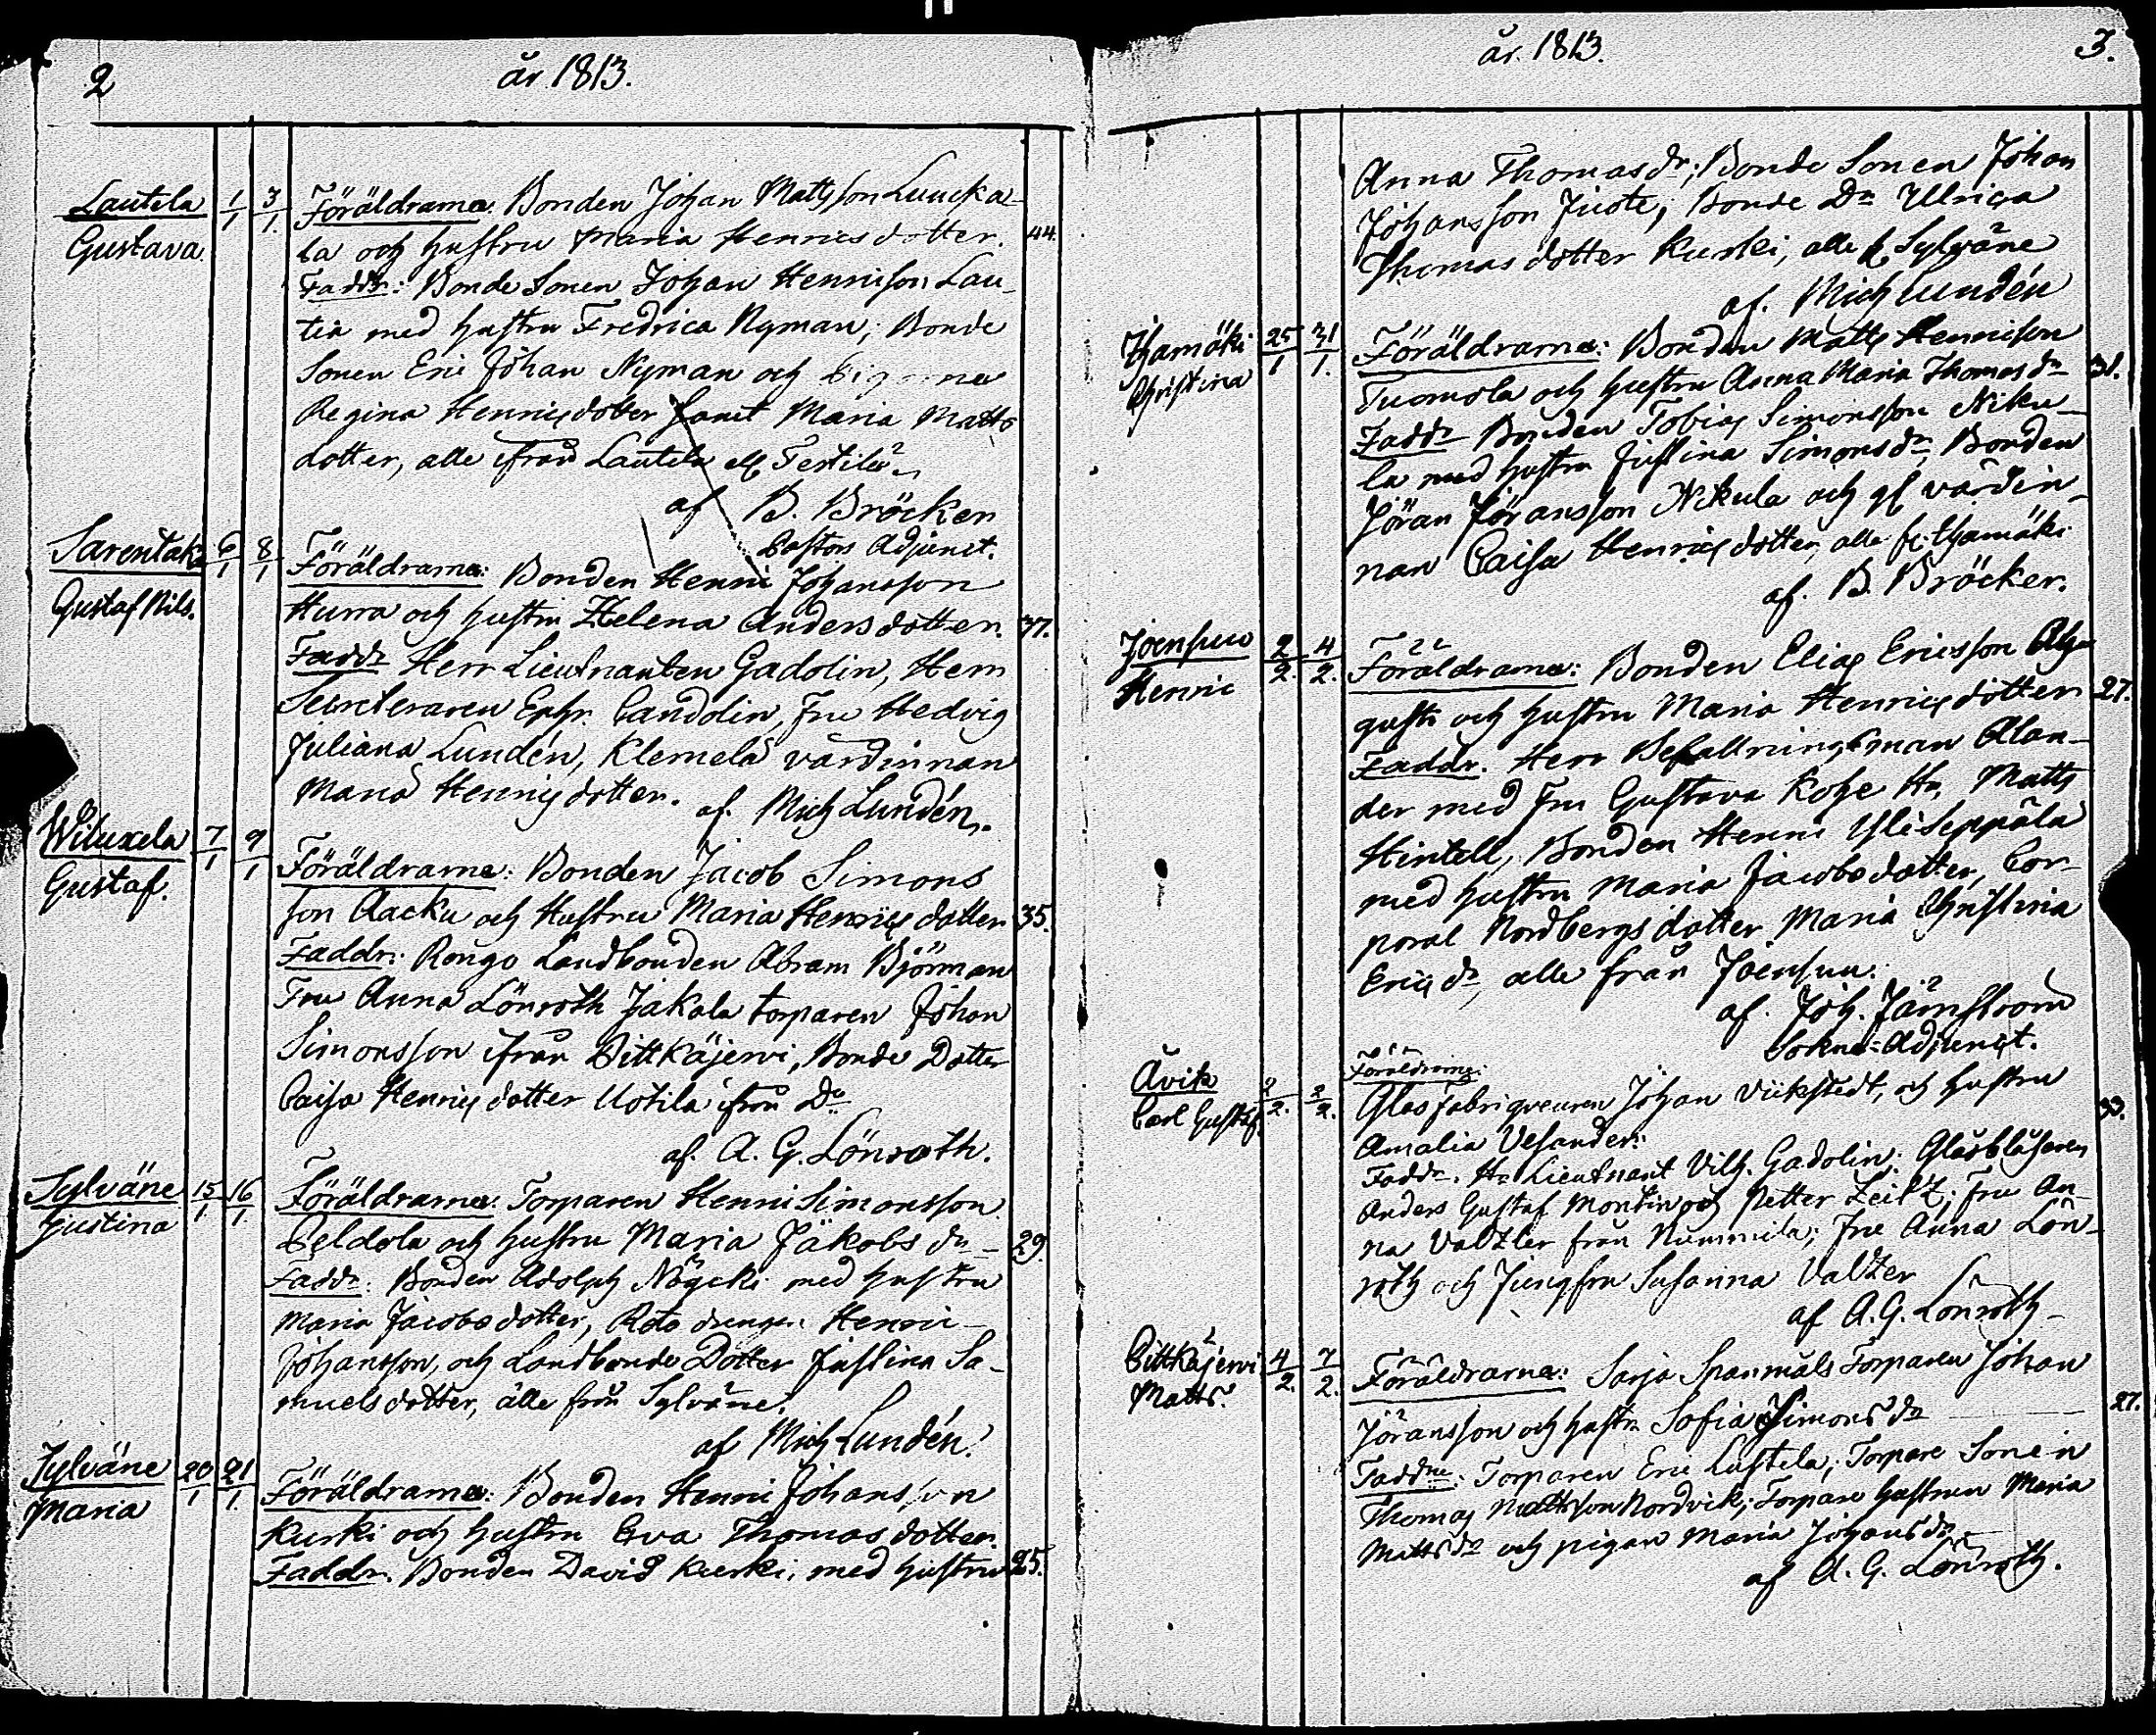 2
år 1813.
Lautela 1/1 3/1 Föräldrarna: Bonden Johan Mattsson Luucka-
Gustava la och hustru Maria Henricsdotter. 44.
Faddr: Bonde Sonen Johan Henricson Lau-
tia med hustru Fredrica Nyman; Bonde
Sonen Eric Johan Nyman och
Regina Henricsdotter samt Maria Matts
dotter, alle ifrån Lautela
af B. Bröcker
Pastors Adjunct.
Sarentaka 6/1 8/1 Föräldrarna: Bonden Henric Johansson
Gustaf Nils. Hurra och hustru Helena Andersdotter. 37.
Faddr Herr Lieutnanten Gadolin, Herr
Secreteraren Ephr. Candolin, Fru Hedvig
Juliana Lundén, Klemelä värdinnan
Maria Henricsdotter.
af. Mich Lundén.
Wiluxela 7/1 9/1 Föräldrarna: Bonden Jacob Simons
Gustaf. son Aacku och Hustru Maria Henricsdotter 35.
Faddr: Rongo Landbonden Abram Björman
Fru Anna Lönroth Jakala torparen Johan
Simonsson ifrån Pittkäjervi, Bonde Dotter
Caisa Henricsdotter Uotila ifrån Do
af. A. G. Lönroth.
Sylväne 15/1 16/1 Föräldrarna: Torparen Henric Simonsson
Gustina Peldola och hustru Maria Jakobs dr 29.
Faddr: Bonden Adolph Nägcki med hustru
Maria Jacobsdotter, drengen Henric
Johansson, och Landbonde Dotter Justina Sa-
muelsdotter, alle från Sylväne.
af Mich Lundén.
Sylväne 20/1 21/1 Föräldrarna: Bonden Henric Johansson
Maria Kurki och hustru Eva Thomasdotter.
Faddr. Bonden David Kurki, med hustru 25.
år. 1813.
3.
Anna Thomasdr; Bonde Sonen Johan
Johansson Juote; Bonde Dr Ulrica
Thomasdotter Kurki, alle fr Sylväne
af. Mich Lundén
Ihamäki 25/1 31/1 Föräldrarna: Bonden Matts Henricson
Christina Tuomola och hustru Anna Maria Thomasdr 31.
Faddr Bonden Tobias Simonsson Niku-
la med hustru Justina Simonsdr, Bonden
Jöran Jöransson Nikula och gl värdin-
nan Caisa Henricsdotter, alla fr. Ihamäki
af. B. Bröcker.
Joensuu 2/2. 4/2. Föräldrarna: Bonden Elias Ericsson Alha-
Henric gusti och hustru Maria Henricsdotter 27.
Faddr. Herr Befallningsman Alan-
der med Fru Gustava Kohe Hr. Matts
Hintell, Bonden Henric Yliseppälä
med hustru Maria Jacobsdotter, Cor-
poral Nordbergs dotter Maria Christina
Ericsdr, alle från Joensuu.
af. Joh. Järnström
Sokne-Adjunct.
Föräldrarna:
Åvik 2/2. 2/2. Glasfabriqueuren Johan Vickstedt, och hustru 33.
Carl Gustaf. Amalia Vesander:
Faddr. Hr Lieutnant Vilh. Gadolin; Glasblåsaren
Anders Gustaf Montin och Petter Zeitz; Fru An-
na Valtzler från Nummila; Fru Anna Lön-
roth och Jungfru Susanna Valtzer
af A. G. Lönroth
Pittkäjervi 4/2. 7/2. Föräldrarna: Sarja Spanmåls Torparen Johan
Matts. Jöransson och hustr Sofia Simonsdr 27.
Faddrne: Torparen Eric Lustela; Torpare Sonen
Thomas Mattsson Nordvik; Torpare hustrun Maria
Mattsdr och pigan Maria Johansdr
af A. G. Lönroth.